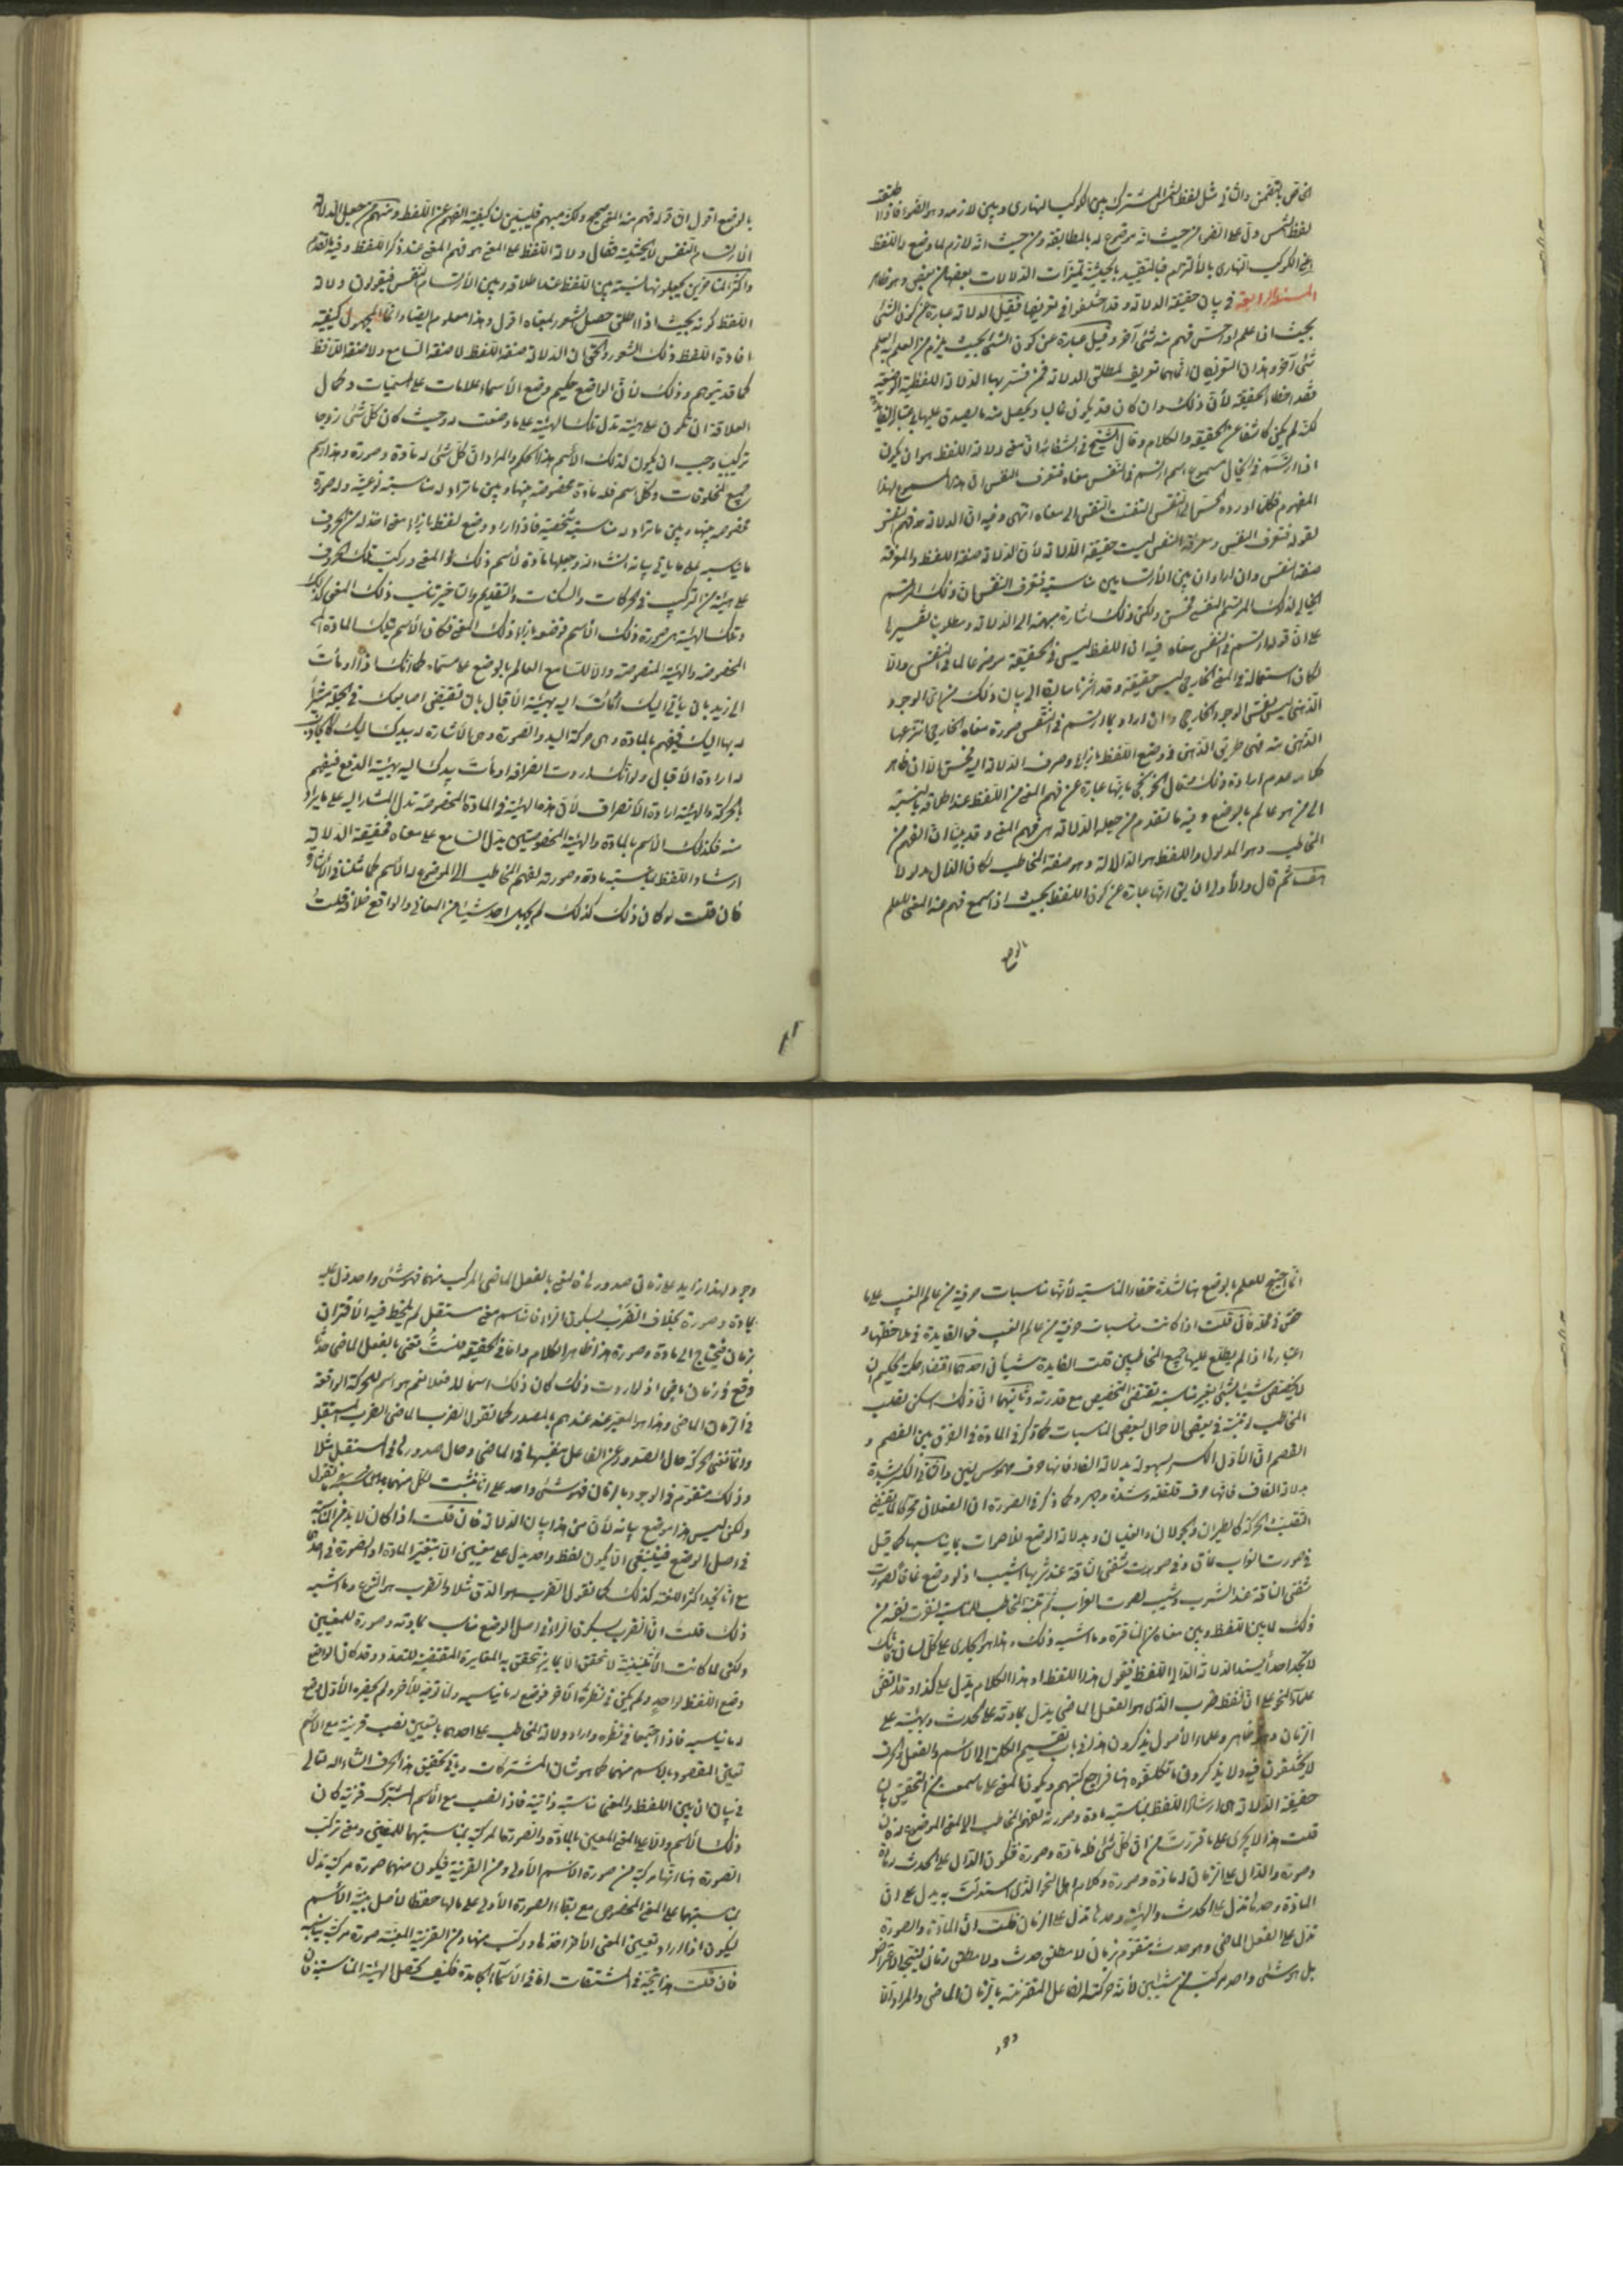 الخاص بالتضمن والثاني مثل لفظ الشمس المشترك بين الكوكب النهاري وبين لازمه وهو الضوء فاذا اطلقت
لفظ الشمس دل على الضوء من حيث انه موضوع له بالمطابقة ومن حيث انه لازم لما وضع له اللفظ
اعني الكوكب النهاري بالالتزام فبالتقييد بالحيثية تميزات الدلالات بعضها من بعض وهو ظاهر
المسئلة الرابعة في بيان حقيقة الدلالة وقد اختلفوا في تعريفها فقيل الدلالة عبارة عن كون الشئ
بحيث اذا علم او احس فهم منه شئ آخر وقيل عبارة عن كون الشئ بحيث يلزم من العلم به العلم
شئ آخر وهذان التعريفان انما هما تعريف لمطلق الدلالة فمن فسر بها الدلالة اللفظية الوضعية
فقد اخطأ الحقيقة لأن ذلك وان كان قد يكون غالبا ويحصل منه ما يصدق عليها
لكنه لم يكن كاشفا عن الحقيقة والكلام وقال الشيخ في الشفا ان معنى دلالة اللفظ هو ان يكون
اذا ارتسم في الخيال مسموع اسم ارتسم في النفس معناه فتعرف النفس ان هذا المسموع لهذا
المفهوم فكلما اورده الحس الى النفس التفتت النفس الى معناه انتهى وفيه ان الدلالة
لقوله فتعرف النفس ومعرفة النفس ليست حقيقة الدلالة لأن الدلالة صفة اللفظ والمعرفة
صفة النفس وان اراد ان بين الارتسامين مناسبة فتعرف النفس ان ذلك المرتسم
الخيالي لذلك المرتسم النفسي فحسن ولكن ذلك اشارة مبهمة الى الدلالة ومطلوب تفسيرها
على ان قوله ارتسم في النفس معناه فيه ان اللفظ ليس في الحقيقة موضوعا لما في النفس والا
لكان استعماله في المعنى الخارجي ليس حقيقة وقد اشرنا سابقا الى بيان ذلك من ان الوجود
الذهني ليس نفس الوجود الخارجي وان اراد بما ارتسم في النفس صورة معناه الخارجي انتزعها
الذهن منه فهي طريق الذهن في وضع اللفظ بازائه وصرف الدلالة اليه فحسن الا ان ظاهر
كلامه عدم ارادة ذلك وقال الخونجي بانها عبارة عن فهم المعنى من اللفظ عند اطلاقه بالنسبة
الى من هو عالم بالوضع وفيه ما تقدم من جعله الدلالة هي فهم المعنى وقد بينا ان الفهم من
المخاطب وهو المدلول واللفظ هو الدال الدلالة وهو صفة المخاطب لكان الدال مدلولا
هف ثم قال والأولى ان يق انها عبارة عن كون اللفظ بحيث اذا سمع فهم عنه المعنى للعلم
بالوضع
بالوضع اقول ان قوله فهم منه المعنى صحيح ولكنه مبهم فليبين لنا كيفية الفهم عن اللفظ ومنهم من جعل الدلالة
الارتسام النفس لا بحيثية فقال ودلالة اللفظ على المعنى هو فهم المعنى عند ذكر اللفظ وفيه ما تقدم
واكثر المتأخرين يجعلونها نسبة بين اللفظ عند اطلاقه وبين الأرتسام النفس فيقولون دلالة
اللفظ كونه بحيث اذا اطلق حصل الشعور لمعناه اقول وهذا معلوم ايضا وانما المجهول كيفية
افادة اللفظ ذلك الشعور والحق ان الدلالة صفة اللفظ لا صفة السامع ولا صفة اللافظ
كما قد يتوهم وذلك لأن الواضع حكيم وضع الأسماء علامات على المسميات وكمال
العلاقة ان تكون على هيئة تدل تلك الهيئة على ما وضعت له وحيث كان كل شئ زوجا
تركيبيا وجب ان يكون لذلك الأسم هذا الحكم والمراد ان كل شئ له مادة وصورة وهذا حكم
جميع المخلوقات ولكل اسم فله مادة مخصوصة بينها وبين ما تراد له مناسبة نوعية وله صورة
مخصوصة بينها وبين ما تراد له مناسبة شخصية فاذا اراد وضع لفظ بازاء معنى اخذ له من الحروف
ما يناسبه على ما يأتي بيانه انشاء الله وجعلها مادة لأسم ذلك المعنى وركب تلك الحروف
على هيئة من التركيب في الحركات والسكنات والتقديم والتأخير تناسب ذلك المعنى كذلك
وتلك الهيئة هي صورة ذلك الاسم فوضعه بازاء ذلك المعنى فكان الأسم تلك المادة
المخصوصة والهيئة المنصوصة دالا للسامع العالم بالوضع على مسماه كما انك اذا اومأت
الى زيد بان يأتي اليك اومأت اليه بهيئة الأقبال بان تقبض اصابعك في الجملة مشيرا
له بها اليك فيفهم بالمادة وهي حركة اليد والصورة وهي الاشارة له بيدك اليك
له ارادة الأقبال ولو انك اردت انصرافه اومأت بيدك اليه بهيئة الدفع فيفهم
بالحركة والهيئة ارادة الأنصراف لأن هذه الهيئة في المادة المخصوصة تدل المشار اليه على ما يراد
منه فكذلك الاسم بالمادة والهيئة المخصوصتين يدل السامع على معناه فحقيقة الدلالة
ارشاد اللفظ بمناسبة مادته وصورته لفهم المخاطب الى الموضوع له الأسم كما مثلنا في الاشارة
فان قلت لو كان ذلك كذلك لم يجهل احد شيئا من المعاني والواقع خلافه قلت
انما احتيج للعلم بالوضع هنا لشدة خفاء المناسبة لأنها مناسبات حرفية من عالم الغيب على ما
حقق في محله فان قلت اذا كانت مناسبات حرفية من عالم الغيب فما الفايدة في ملاحظتها و
اعتبارها اذا لم يطلع عليها جميع المخاطبين قلت الفايدة شيئان احدهما اقتضاء حكمة الحكيم ان
لا يخصص شيئا لشئ بغير مناسبة تقتضي التخصيص مع قدرته وثانيهما ان ذلك اسكن لقلب
المخاطب لو تنبه في بعض الاحوال لبعض المناسبات كما ذكر في المادة في الفرق بين الفصم و
القصم ان الأول الكسر بسهولة بدلالة الفاء فانها حرف مهموس لين والثاني الكسر بشدة
بدلالة القاف فانها حرف قلقلة وشدة وجهر وكما ذكر في الصورة ان الفعلان محركا لما يقتضي
التقلب والحركة كالطيران والجولان والغليان وبدلالة الوضع للأصوات بما يناسبها كما قيل
في صورت الغراب غاق وفي صورت شفتي الناقة عند شربها الشيب اذ لو وضع غاق لصوت
شفتي الناقة عند الشرب وشيب لصوت الغراب ثم تنبه المخاطب للمناسبة لنفرت نفسه من
ذلك لما بين اللفظ وبين معناه من المنافرة وما اشبه ذلك وهذا هو الجاري على كل لسان فانك
لا تجد احدا يسند الدلالة الا الى اللفظ فيقول هذا اللفظ او هذا الكلام يدل على كذا وقد اتفق
علماء النحو على ان لفظ ضرب الذي هو الفعل الماضي يدل بمادته على الحدث وبهيئته على
الزمان وهو ظاهر وعلماء الأصول يذكرون هذا في باب تقسيم الكلمة الى الاسم والفعل والحرف
لا يختلفون فيه ولا يذكرون ما تكلفوه هنا فراجع كتبهم ويكون المعنى على ما سمعت من التحقيق بان
حقيقة الدلالة هي ارشاد اللفظ بمناسبة مادته وصورته لفهم المخاطب الى المعنى الموضوع له فان
قلت هذا لا يجري على ما قررت من ان كل شئ فله مادة وصورة فيكون الدال على الحدث له مادة
وصورة والدال على الزمان له مادة وصورة وكلام اهل النحو الذي استدللت به يدل على ان
المادة وحدها تدل على الحدث والهيئة وحدها تدل على الزمان قلت ان المادة والصورة
تدل على الفعل الماضي وهو حدث متقوم بزمان لا مطلق حدث ولا مطلق زمان ليتجه الاعتراض
بل هو شئ واحد مركب من شيئين لأنه حركة الفاعل المقترنة بالزمان الماضي والمراد ان
وجود
وجود لهذا زايد على زمان صدورها فالمعنى بالفعل الماضي المركب منهما فهو شئ واحد دل عليه
بمادة وصورة بخلاف الضرب بسكون الراء فانه اسم معنى مستقل لم يلحظ فيه الأقتران
بزمان فيحتاج الى مادة وصورة هذا ظاهر الكلام واما في الحقيقة فلست تعني بالفعل الماضي حدثا
وقع في زمان ماض اذ لو اردت ذلك كان ذلك اسما للفعل نعم هو اسم للحركة الواقعة
في الزمان الماضي وهذا هو المعبر عنه عندهم بالمصدر كما تقول الضرب الماضي الضرب المستقبل
وانما تعني الحركة حال الصدور عن الفاعل بنفسها في الماضي وحال صدورها في المستقبل مثلا
وذلك متقوم في الوجود بالزمان فهو شئ واحد على انا نثبت لكل منهما
ولكن ليس هذا موضع بيانه لأن من هذا بيان الدلالة فان قلت اذا كان لا بد من المناسبة
في اصل الوضع فينبغي الا يكون لفظ واحد يدل على معنيين الا بتغيير المادة او الصورة في احدهما
مع انا نجد اكثر اللغة كذلك كما تقول الضرب هو الدق مثلا والضرب هو النوع وما اشبه
ذلك قلت ان الضرب بسكون الراء في اصل الوضع مناسب بمادته وصورته للمعنيين
ولكن لما كانت الأثنينية لا تتحقق الا بمايز تتحقق به المغايرة المقتضية للتعدد وقد كان الواضع
وضع اللفظ لواحد ولم يكن في نظره الآخر فوضع له ما يناسبه ولما توجه للآخر ولم يحضره الأول وضع
له ما يناسبه فاذا اجتمعا في نظره واراد دلالة المخاطب على احدهما بالتعيين نصب قرينة مع الاسم
تعين المقصود بالاسم منهما كما هو شأن المشتركات ويأتي تحقيق هذا الحرف انشاء الله تعالى
في بيان ان بين اللفظ والمعنى مناسبة ذاتية فاذا نصب مع الأسم المشترك قرينة كان
ذلك الأسم دالا على المعنى المعين بالمادة والصورة المركبة بمناسبتهما للمعنى ومعنى تركب
الصورة هنا انها مركبة من صورة الاسم الأولى ومن القرينة فيكون منهما صورة مركبة تدل
بمناسبتها على المعنى المخصوص مع بقاء الصورة الأولى على حالها حفظا لأصل بنية الأسم
ليكون اذا اراد تعيين المعنى الآخر اخذها وركب منها ومن القرينة المعينة صورة مركبة
فان قلت هذا يتجه في المشتقات اما في الأسماء الجامدة فكيف تحصل الهيئة المناسبة فان